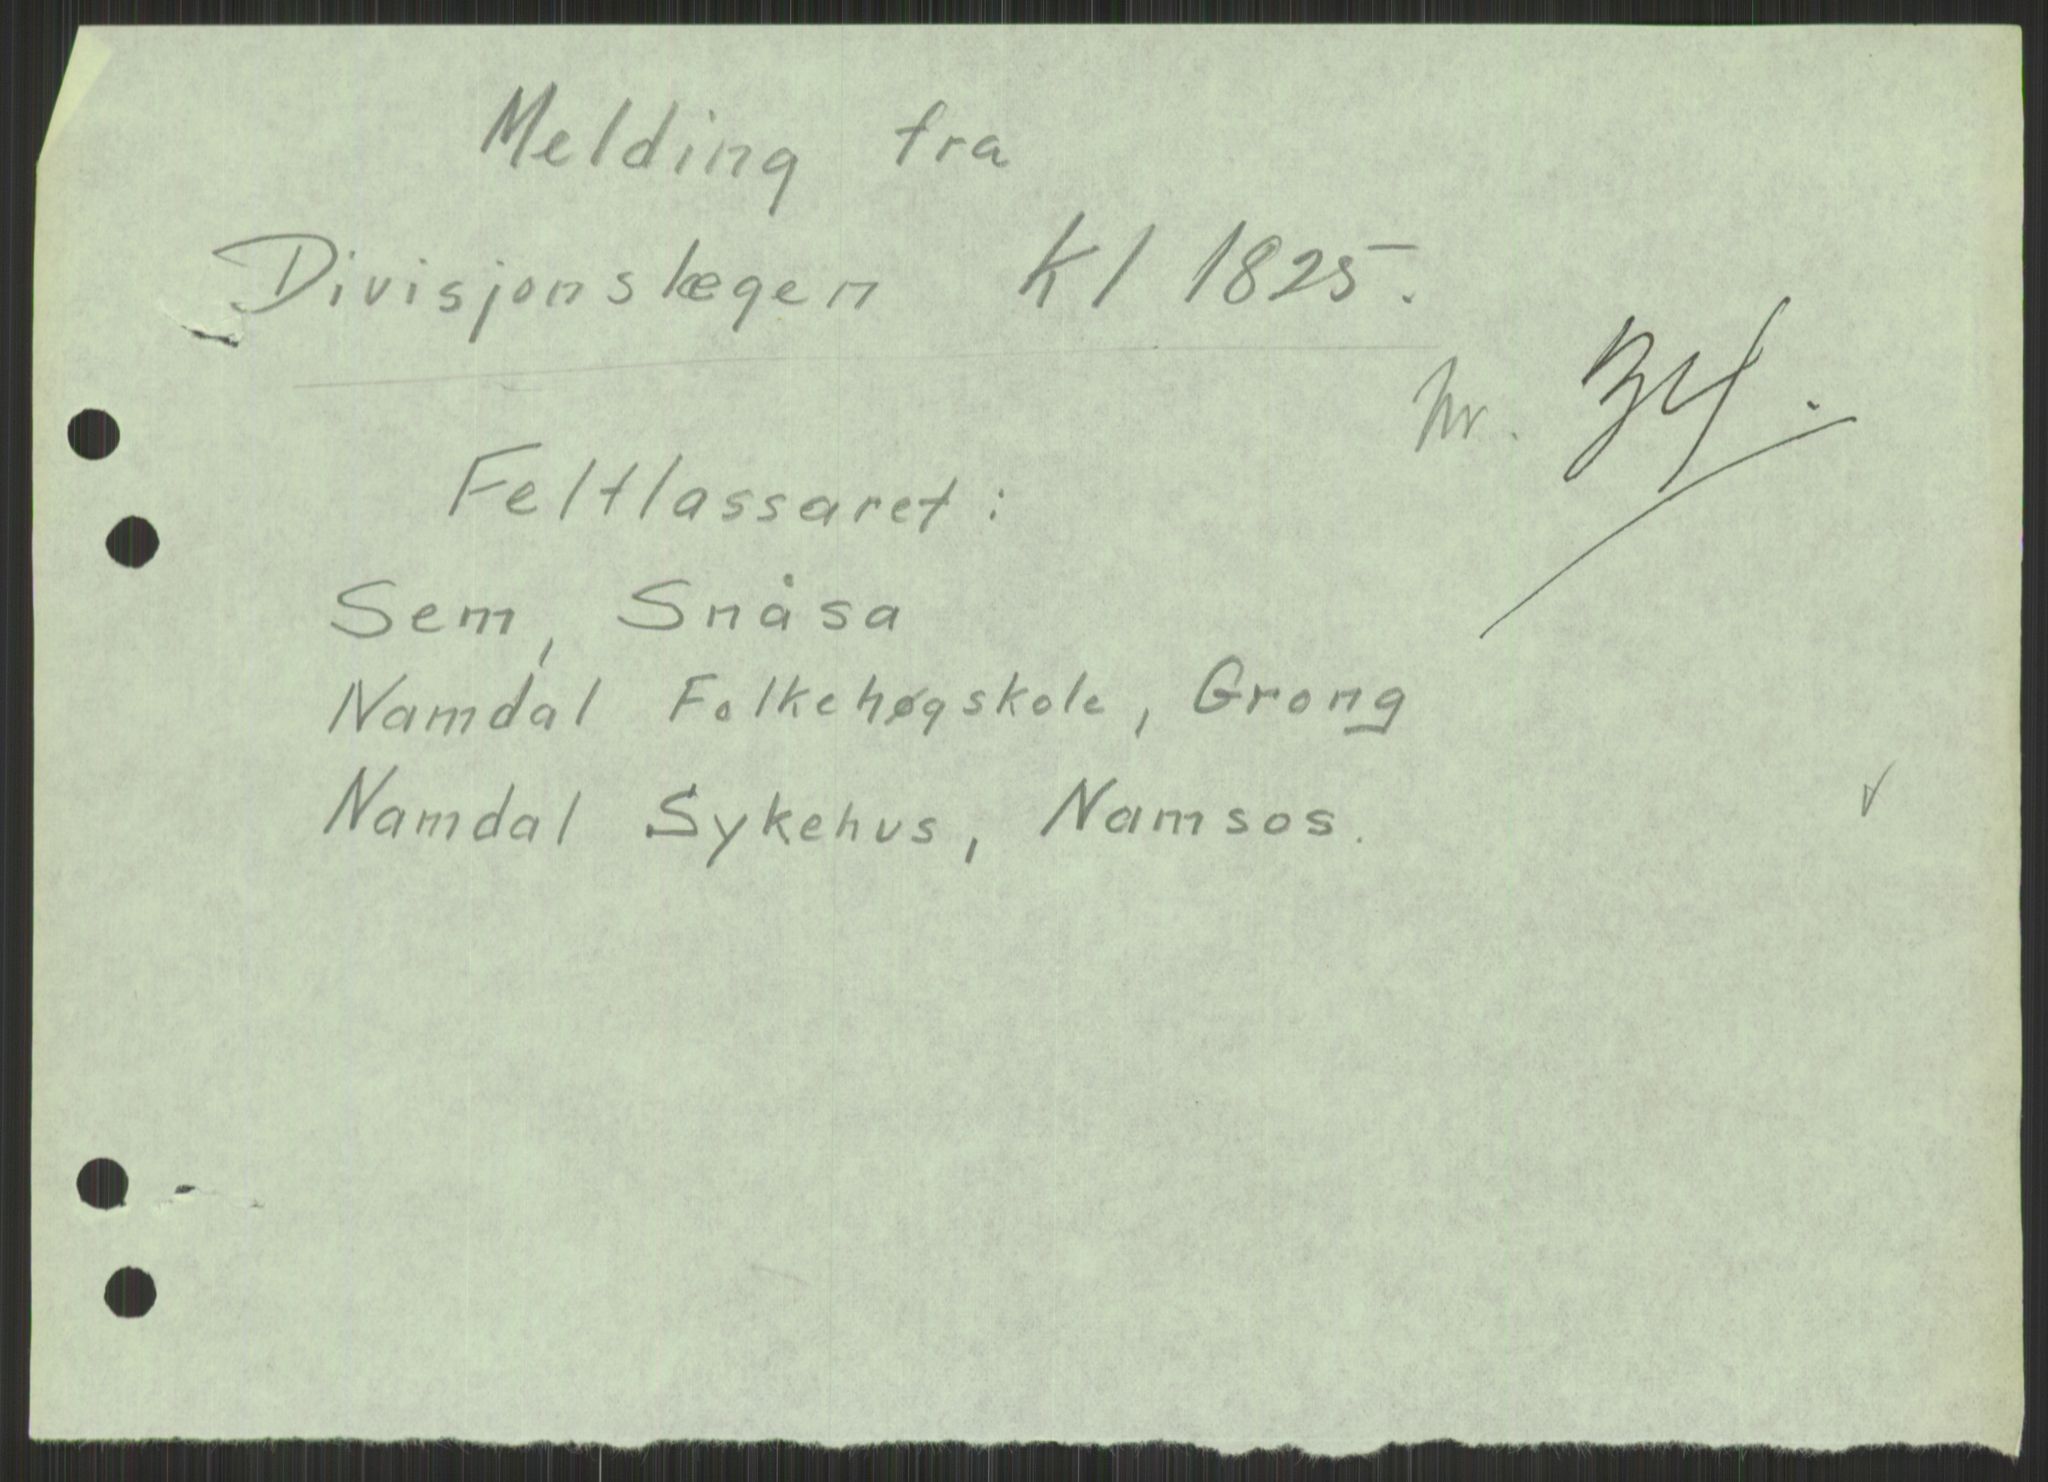 Melding fra
Divisjonslægen Kl 1825.
Nr. 34.
Feltlassaret:
Sem, Snåsa
Namdal Folkehøgskole, Grong
Namdal Sykehus, Namsos.